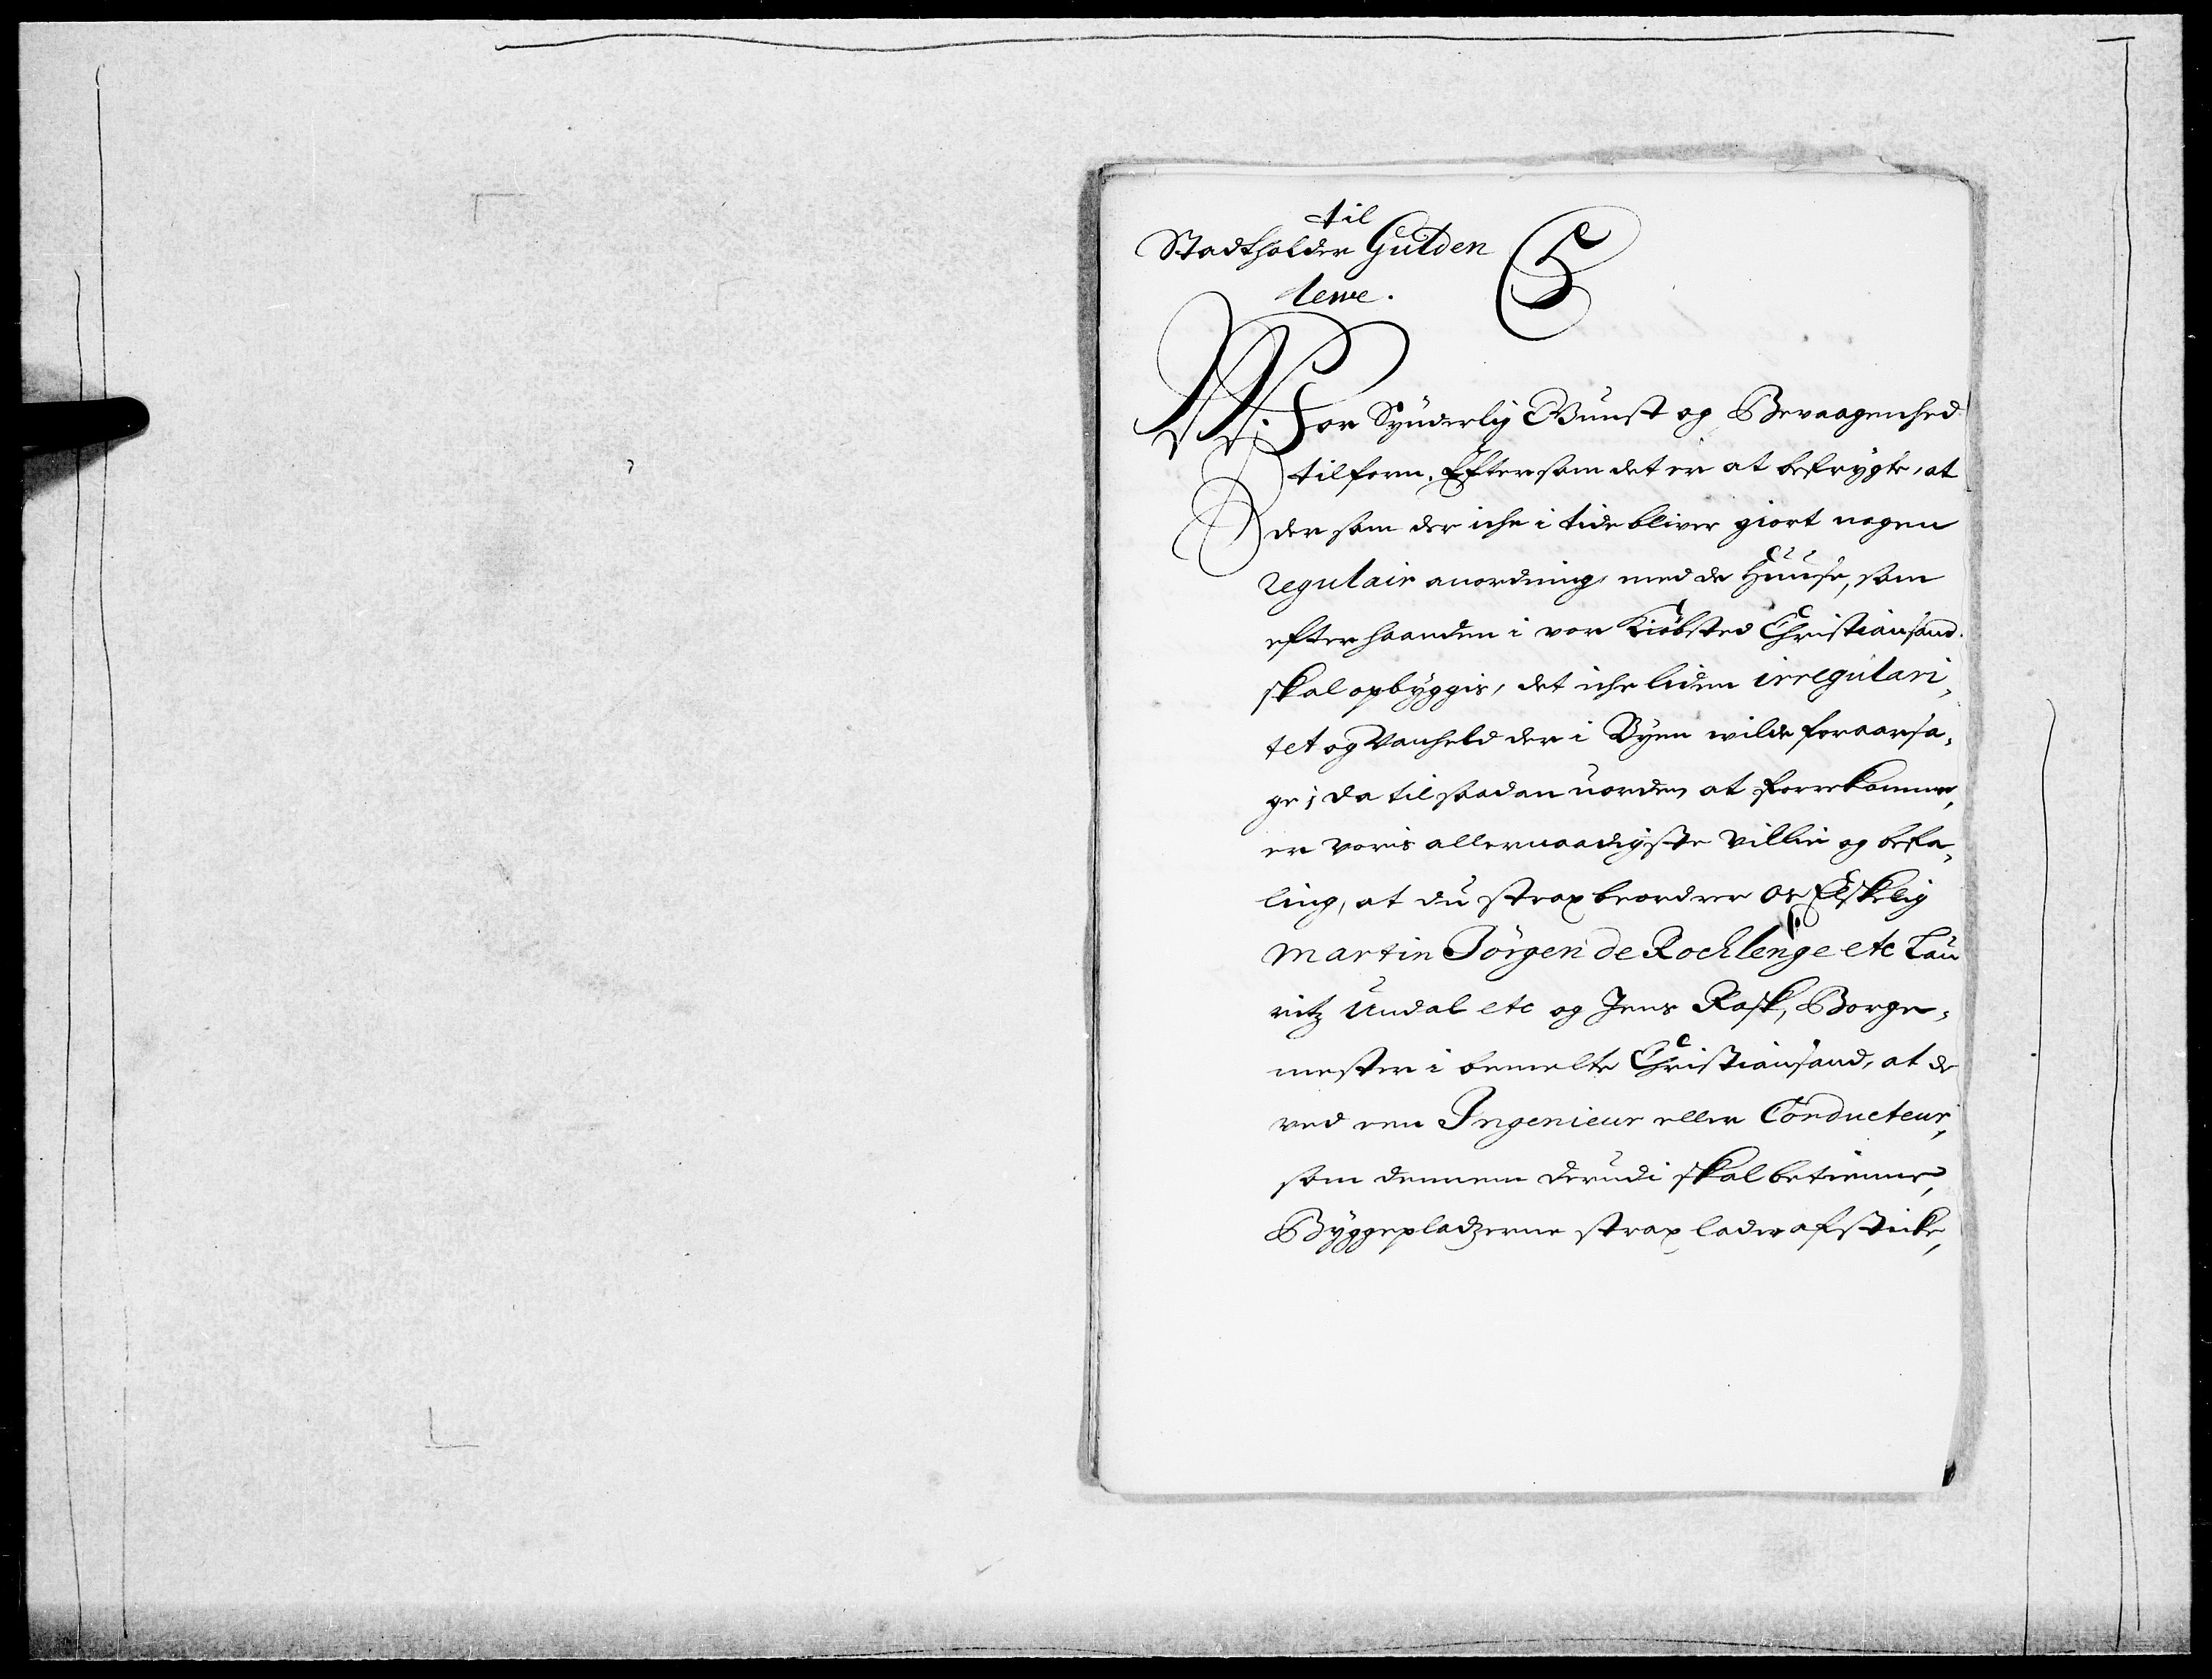 til
Stadtholder Gülden
lewe.
C 5
W. For Synderlig Gunst og Bevaagenhed
tilforn. Eftersom det er at befrygte, at
der som der iche i tide bliver giort nogen
regulair anordning, med de Huuse, som
efterhaanden i vor Kiöbsted Christiansand
skal opbyggis, det iche liden irregulari,
tet og Vanheld der i Byen wilde foraarsa,
ge; Da til saadan uorden at forrekomme,
er voris allernaadigste villie og befa,
ling, at du strax beordrer Os Elskelig
Martin Jörgen de Rochlenge etc Lau
ritz Undal etc og Jens Rask, Borge,
mester i bemelte Christiansand, at de
ved een Ingenieur eller Conducteur,
som dennem derudi skal betienne,
Byggepladzerne strax lader afsticke,